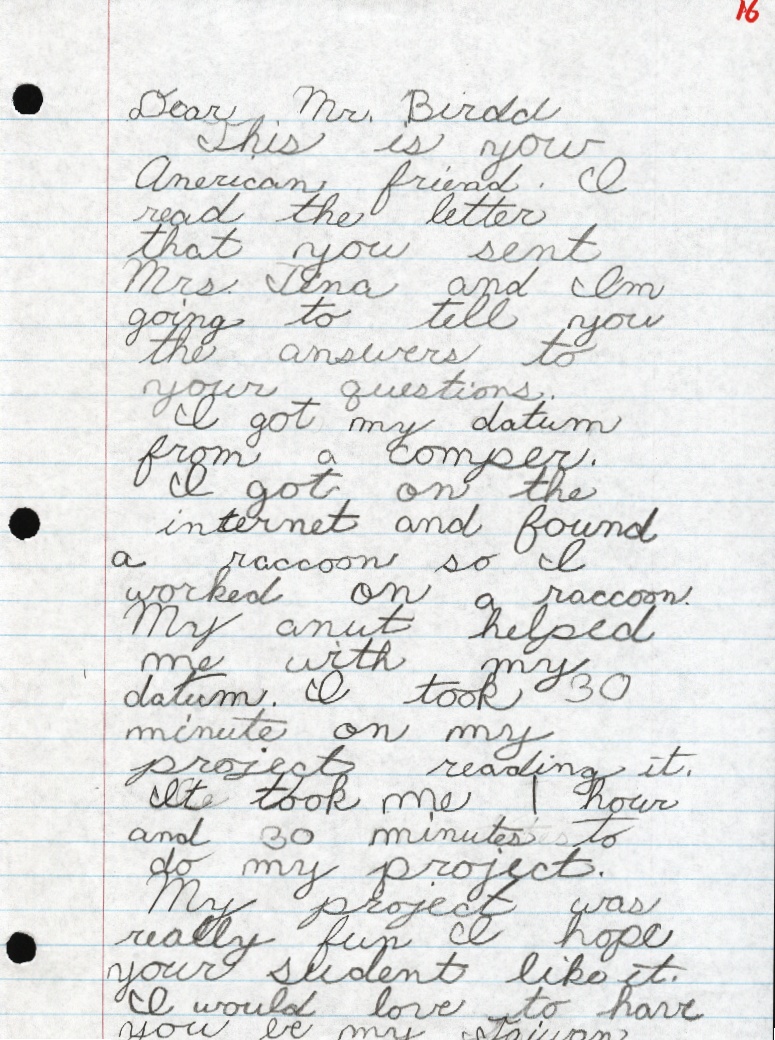 16
Dear Mr. Birdd
This is your
American friend. I
read the letter
that you sent
Mrs. Tina and I'm
going to tell you
the answers to
your questions.
I got my datum
from a comper.
I got on the
internet and found
a raccoon so I
worked on a raccoon.
My anut helped
me with my
datum. I took 30
minute on my
project reading it.
It took me 1 hour
and 30 minutes to
do my project.
My project was
really fun I hope
your sudent like it.
I would love to have
you be my Taiwan